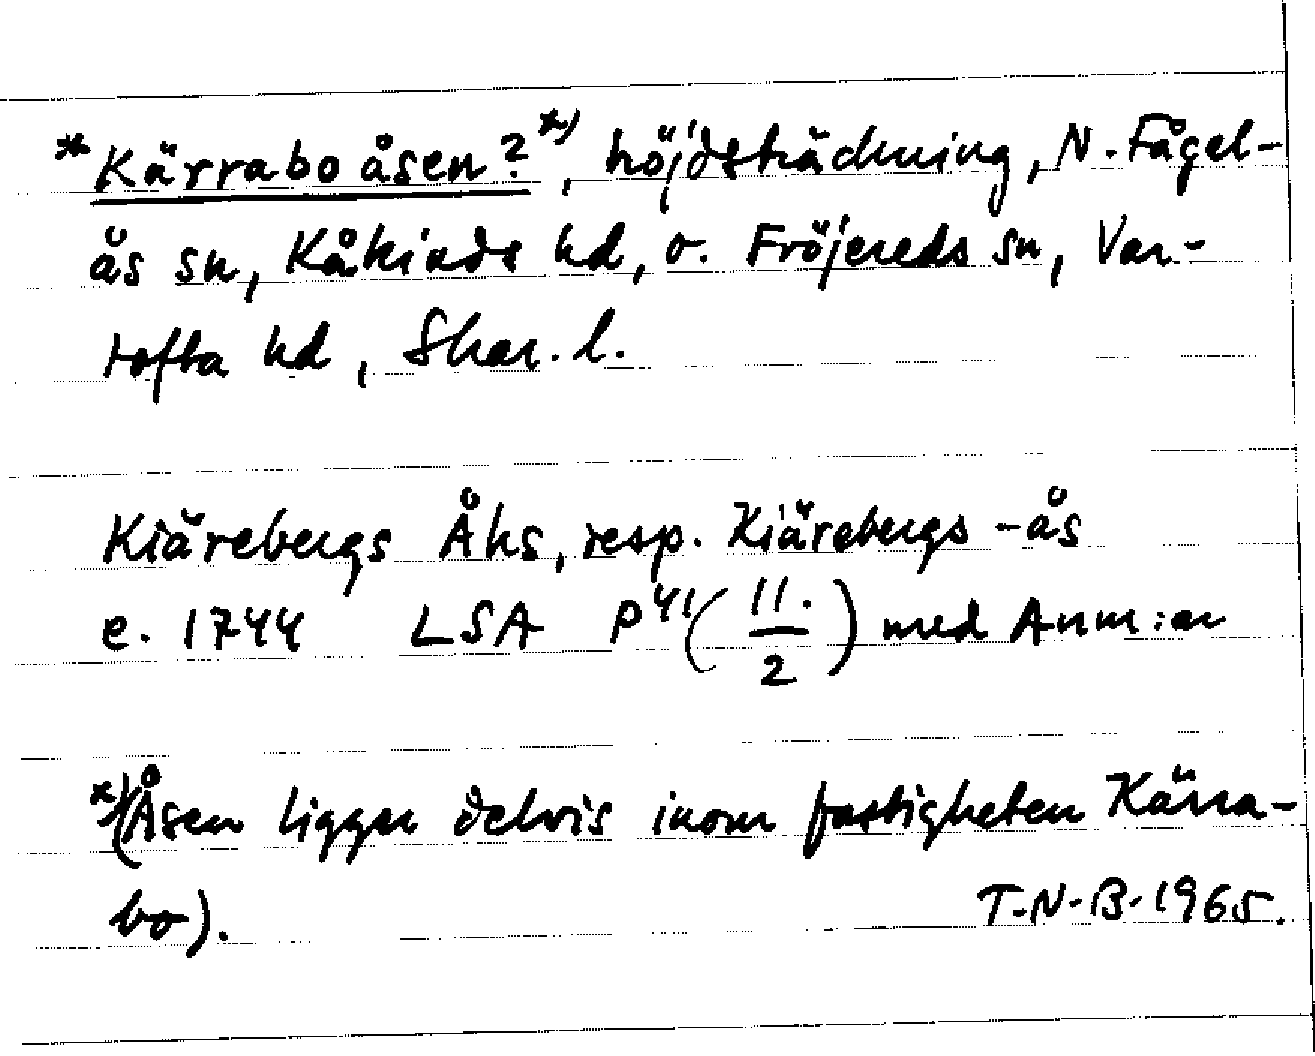 *Kärrabo åsen?*), höjdsträckning, N. Fågel-
ås sn, Kåkinds hd, o. Fröjereds sn, Var-
tofta hd, Skar. l.
Kiärebergs Åhs, resp. Kiärebergs -ås
e. 1744 LSA P41 (11./2) med Anm:ar
*) (Åsen ligger delvis inom fastigheten Kärra-
bo).
T-N-B-1965.